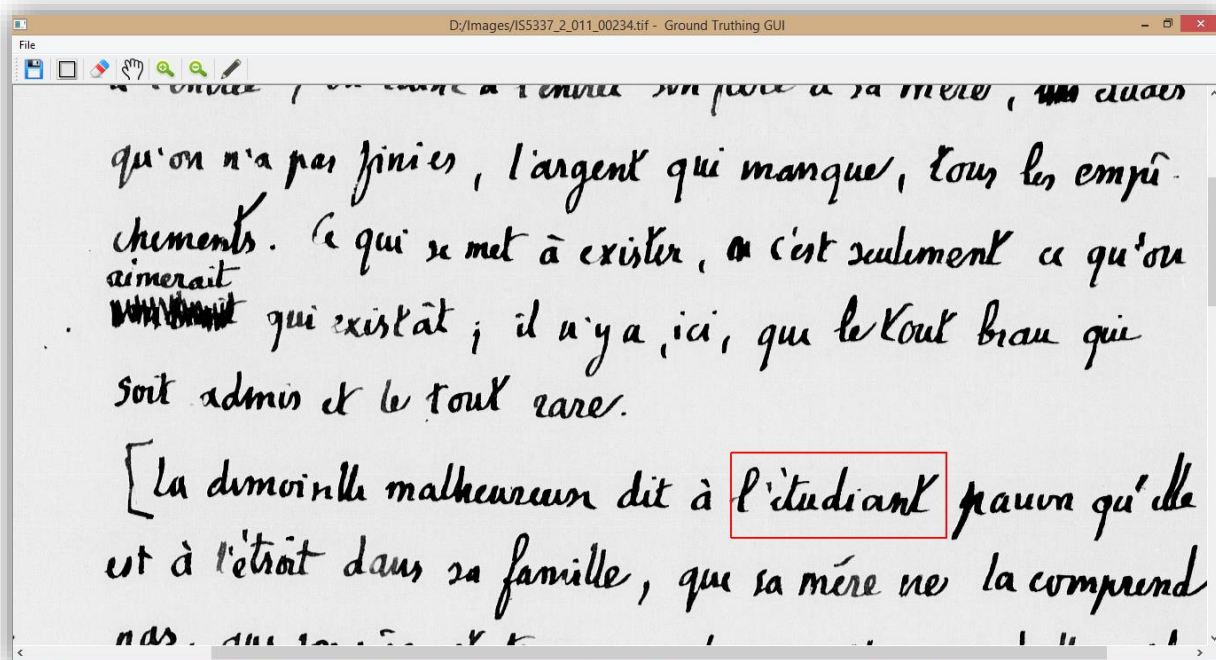 D:/Images/IS5337_2_011_00234.tif - Ground Truthing GUI
File
à l'entrée son père et sa mère,
qu'on n'a pas finies, l'argent qui manque, tous les empê-
chements. Ce qui se met à exister, c'est seulement ce qu'on
aimerait
qui existât ; il n'y a, ici, que le tout beau qui
soit admis et le tout rare.
[La demoiselle malheureuse dit à l'étudiant pauvre qu'elle
est à l'étroit dans sa famille, que sa mère ne la comprend
pas,